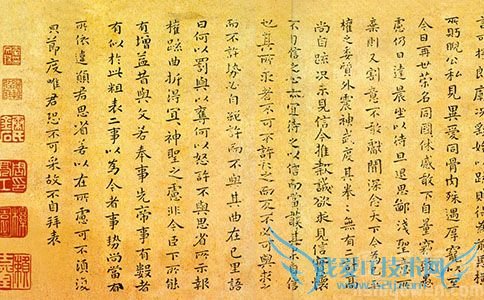 言可擇郎廟況繇始以疏賤得為前恩
所盱睨公私見異愛同骨肉殊遇厚寵以至
今日再世榮名同國休慼敢不自量竊致愚
慮仍日達晨坐以待旦退思鄙淺聖意所
棄則又割意不敢獻聞深念天下今為已平
權之委質外震神武度其拳拳無有二計高
尚自疏況未見信今推款誠欲求見信實懷
不自信之心亦宜待之以信而當護其未自信
也其所求者不可不許許之而反不必可與求之
而不許勢必自絕許而不與其曲在己里語
曰何以罰與以奪何以怒許不與思省所示報
權疏曲折得宜宜神聖之慮非今臣下所能
有增益昔與文若奉事先帝事有數者
有似於此粗表二事以為今者事勢尚當有
所依違願君思省若以在所慮可不須復
節度唯君恐不可采故不自拜表
我爱IT技术网